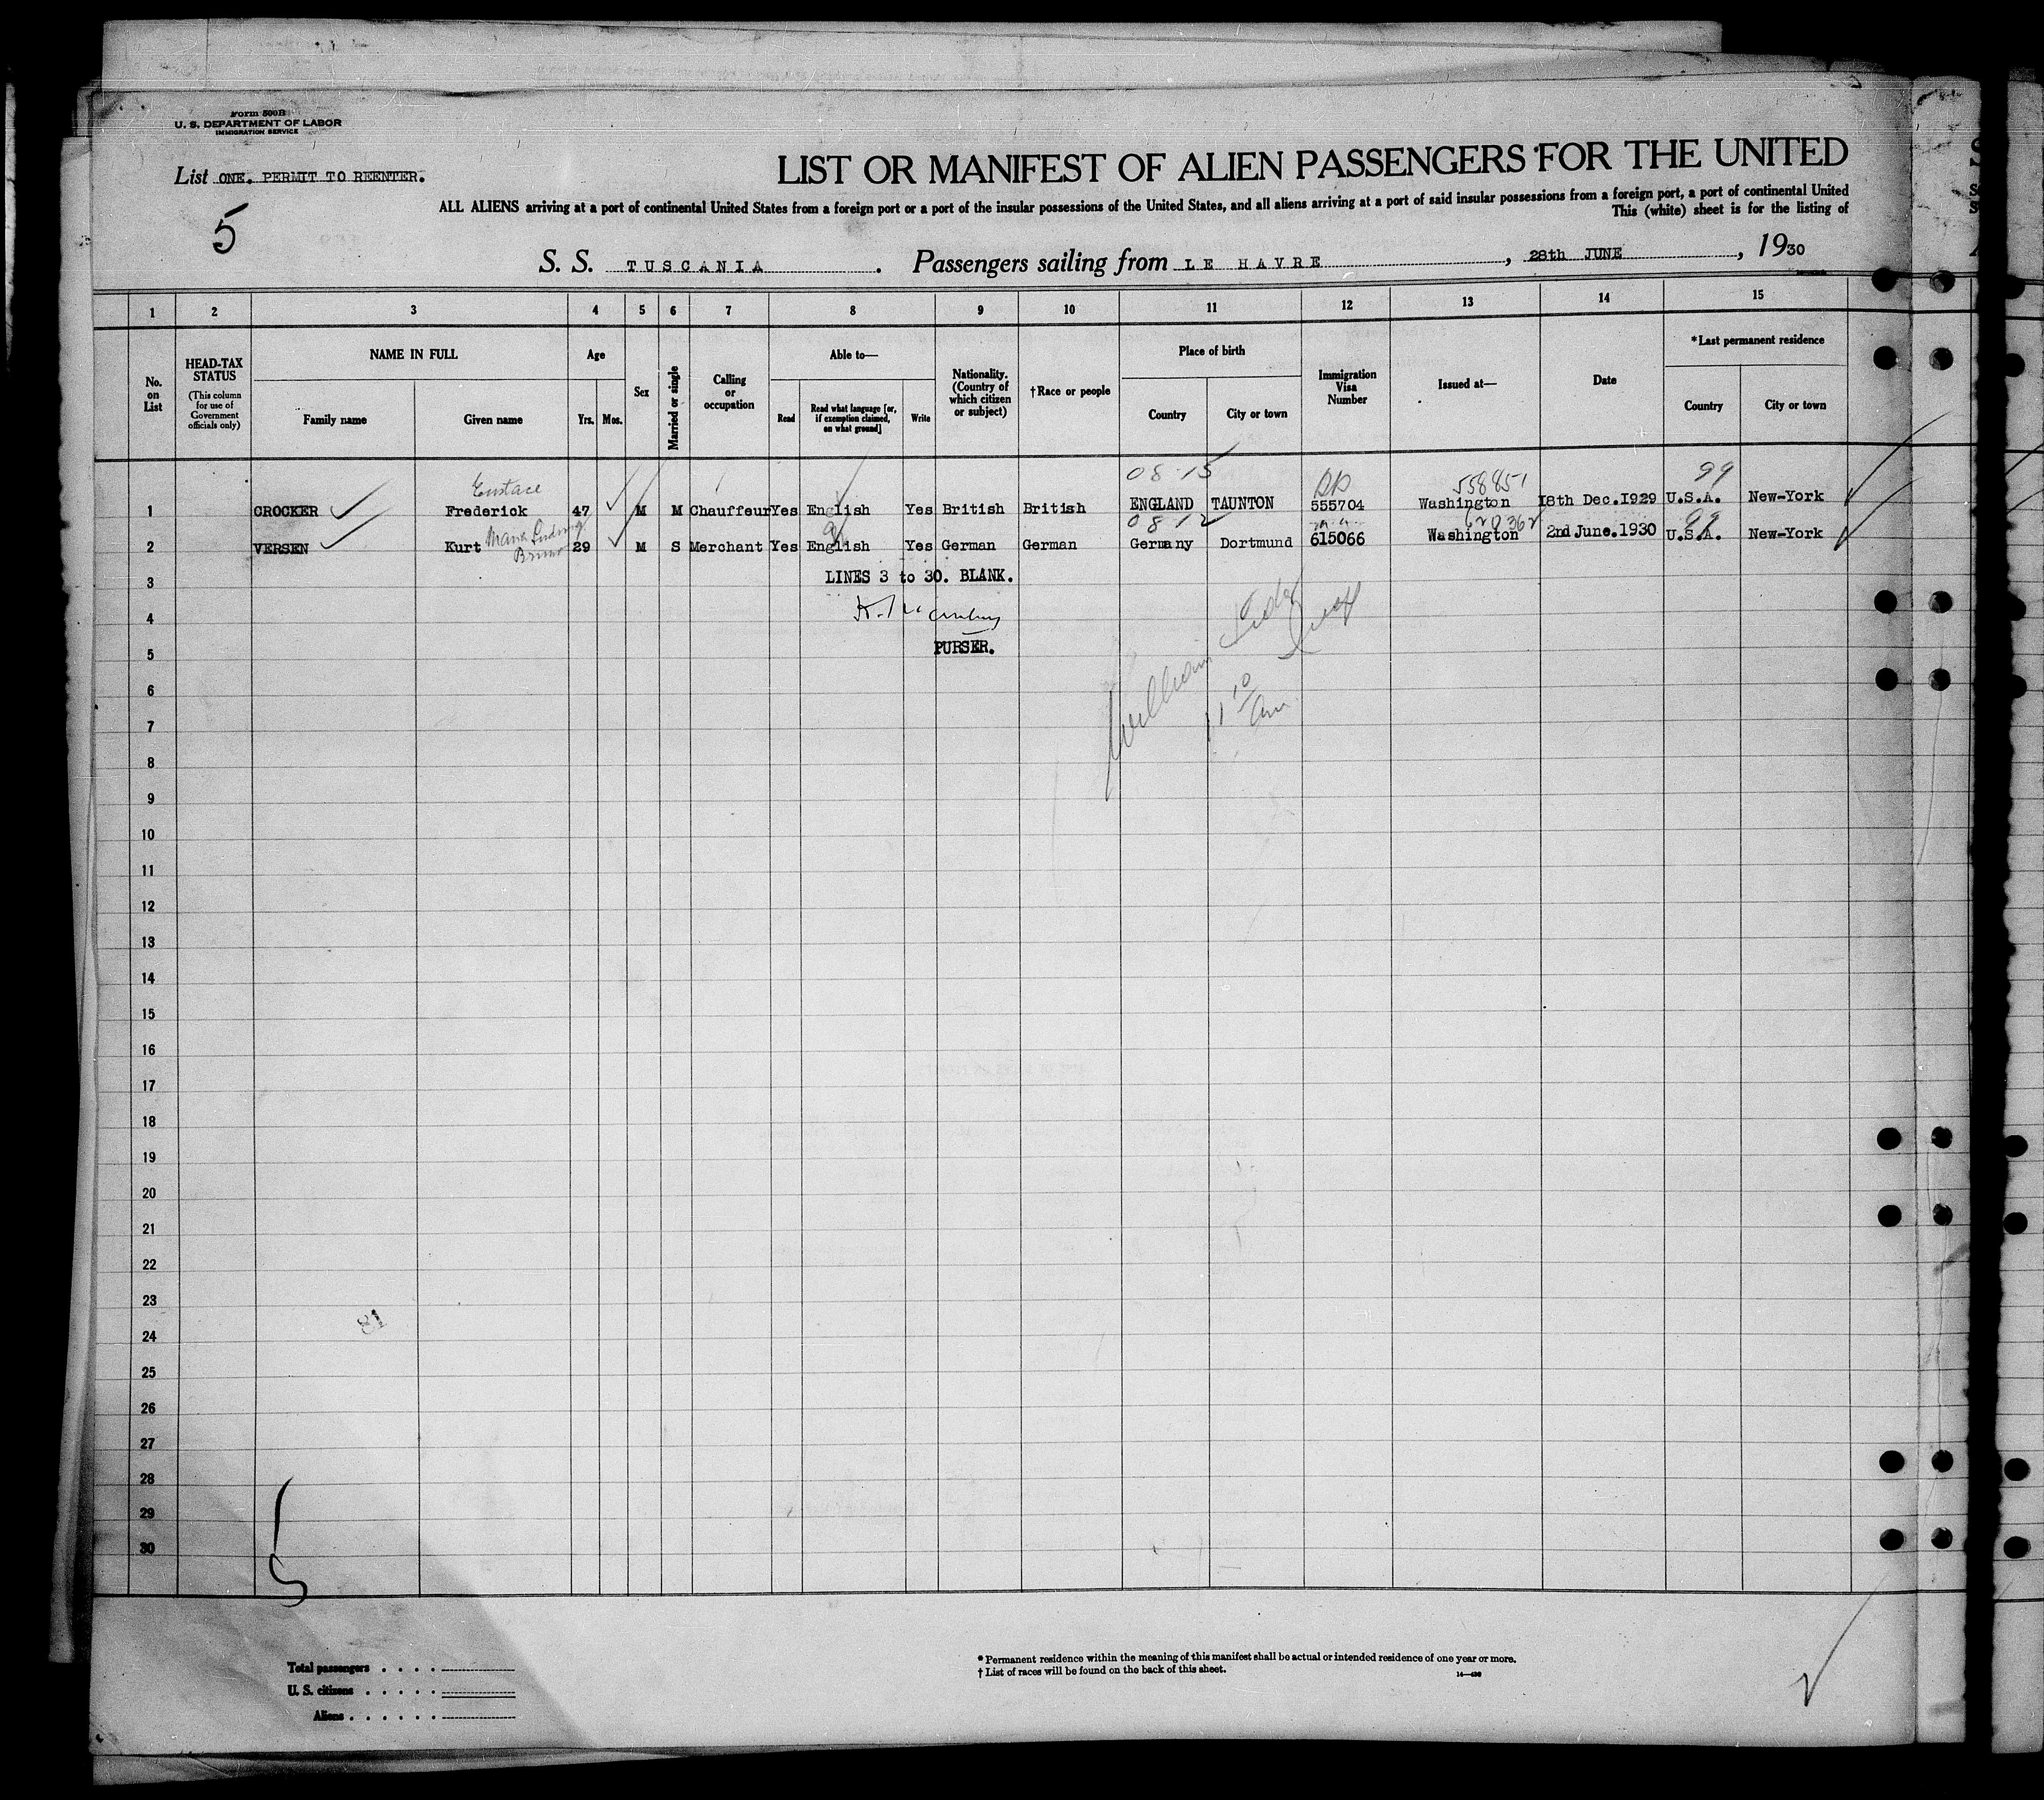 Form 500B
U. S. DEPARTMENT OF LABOR
IMMIGRATION SERVICE
List ONE. PERMIT TO REENTER.
5
LIST OR MANIFEST OF ALIEN PASSENGERS FOR THE UNITED
ALL ALIENS arriving at a port of continental United States from a foreign port or a port of the insular possessions of the United States, and all aliens arriving at a port of said insular possessions from a foreign port, a port of continental United
This (white) sheet is for the listing of
S. S. TUSCANIA. Passengers sailing from LE HAVRE, 28th JUNE, 1930
1 2 3 4 5 6 7 8 9 10 11 12 13 14 15
No. on List
HEAD-TAX STATUS (This column for use of Government officials only)
NAME IN FULL
Family name Given name
Age
Yrs. Mos.
Sex
Married or single
Calling or occupation
Able to—
Read Read what language [or, if exemption claimed, on what ground] Write
Nationality. (Country of which citizen or subject)
†Race or people
Place of birth
Country City or town
Immigration Visa Number
Issued at—
Date
*Last permanent residence
Country City or town
Eustace 08-15 558851 99
1 CROCKER Frederick 47 M M Chauffeur Yes English Yes British British ENGLAND TAUNTON 555704 Washington 18th Dec.1929 U.S.A. New-York
Maria Ludwig 08-12 99
2 VERSEN Kurt Bruno 29 M S Merchant Yes English Yes German German Germany Dortmund 615066 Washington 2nd June.1930 U.S.A. New-York
3 LINES 3 to 30. BLANK.
4
5 PURSER.
6
William
7
11 10 am
8
9
10
11
12
13
14
15
16
17
18
19
20
21
22
23
81
24
25
26
27
28
29
30
5
Total passengers . . . .
U. S. citizens . . . . .
Aliens . . . . . .
* Permanent residence within the meaning of this manifest shall be actual or intended residence of one year or more.
† List of races will be found on the back of this sheet.